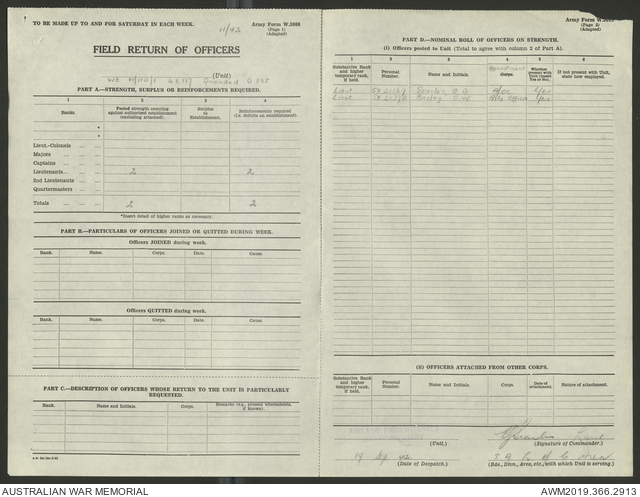 TO BE MADE UP TO AND FOR SATURDAY IN EACH WEEK.
Army Form W.3008
(Page 1)
(Adapted)
FIELD RETURN OF OFFICERS
(Unit)
PART A.—STRENGTH, SURPLUS OR REINFORCEMENTS REQUIRED.
1 2 3 4
Ranks Posted strength counting against authorised establishment (excluding attached). Surplus to Establishment. Reinforcements required (i.e. deficits on establishment).
*
*
Lieut.-Colonels
Majors
Captains
Lieutenants 2 2
2nd Lieutenants
Quartermasters
Totals 2 2
*Insert detail of higher ranks as necessary.
PART B.—PARTICULARS OF OFFICERS JOINED OR QUITTED DURING WEEK.
Officers JOINED during week.
Rank. Name. Corps. Date. Cause.
Officers QUITTED during week.
Rank. Name. Corps. Date. Cause.
PART C.—DESCRIPTION OF OFFICERS WHOSE RETURN TO THE UNIT IS PARTICULARLY REQUESTED.
Rank. Name and Initials. Corps. Remarks (e.g., present whereabouts, if known).
Army Form W.3008
(Page 2)
(Adapted)
PART D.—NOMINAL ROLL OF OFFICERS ON STRENGTH.
(i) Officers posted to Unit (Total to agree with column 2 of Part A).
1 2 3 4 5 6
Substantive Rank and higher temporary rank, if held. Personal Number. Name and Initials. Corps. Whether present with Unit (insert Yes or No). If not present with Unit, state how employed.
Lieut Yes
Lieut Yes
(ii) OFFICERS ATTACHED FROM OTHER CORPS.
Substantive Rank and higher temporary rank, if held. Personal Number. Name and Initials. Corps. Date of attachment. Nature of attachment.
(Unit.)
(Signature of Commander.)
19 Sep 42
(Date of Despatch.)
S.A. L of C Area
(Bde., Divn., Area, etc., with which Unit is serving.)
AUSTRALIAN WAR MEMORIAL
AWM2019.366.2913